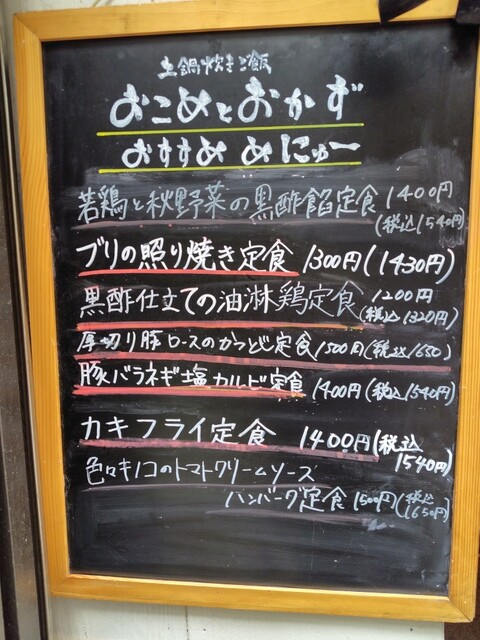 土鍋炊きご飯
おこめとおかず
おすすめ めにゅー
若鶏と秋野菜の黒酢餡定食 1400円
(税込1540円)
ブリの照り焼き定食 1300円(1430円)
黒酢仕立ての油淋鶏定食 1200円
(税込1320円)
厚切り豚ロースのかつとじ定食 1500円(税込1650)
豚バラネギ塩カルビ定食 1400円(税込1540円)
カキフライ定食 1400円(税込
1540円)
色々キノコのトマトクリームソース
ハンバーグ定食 1500円(税込
1650円)